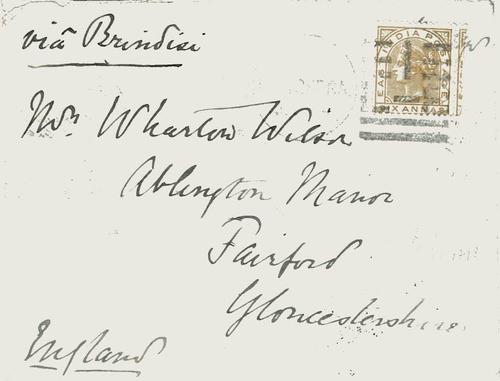 viâ Brindisi
EAST INDIA POSTAGE
SIX ANNAS
Mrs. Wharton Wilson
Ablington Manor
Fairford
Gloucestershire
England